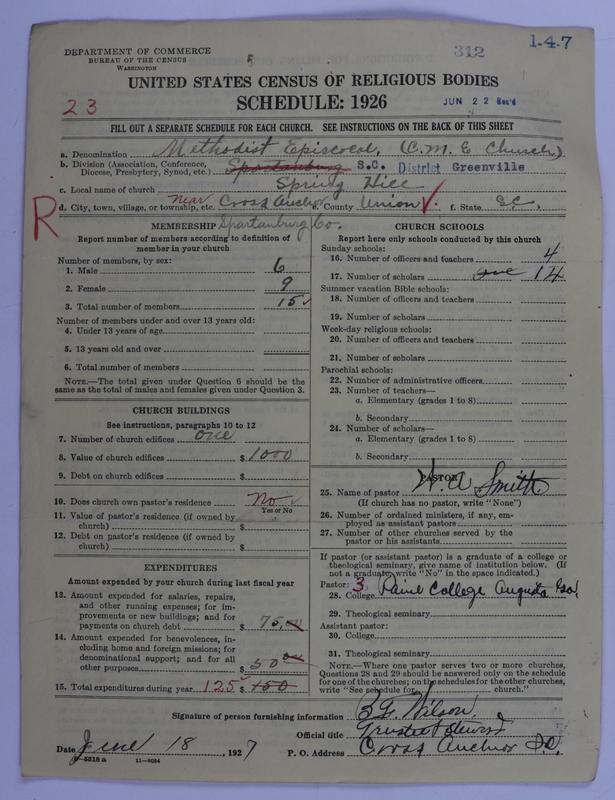 DEPARTMENT OF COMMERCE
BUREAU OF THE CENSUS
WASHINGTON
5
312
1-4-7
UNITED STATES CENSUS OF RELIGIOUS BODIES
23
SCHEDULE: 1926
JUN 22 Rec'd
FILL OUT A SEPARATE SCHEDULE FOR EACH CHURCH. SEE INSTRUCTIONS ON THE BACK OF THIS SHEET
a. Denomination Methodist Episcocal, (C.M.E Church)
b. Division (Association, Conference, Diocese, Presbytery, Synod, etc.) Spartanburg S.C. District Greenville
c. Local name of church Spring Hill
d. City, town, village, or township, etc. Near Cross Anchor e. County Union f. State S.C.
R
Spartanburg Co.
MEMBERSHIP
Report number of members according to definition of member in your church
Number of members, by sex:
1. Male 6
2. Female 9
3. Total number of members 15
Number of members under and over 13 years old:
4. Under 13 years of age
5. 13 years old and over
6. Total number of members
NOTE.—The total given under Question 6 should be the same as the total of males and females given under Question 3.
CHURCH BUILDINGS
See instructions, paragraphs 10 to 12
7. Number of church edifices one
8. Value of church edifices $ 1000
9. Debt on church edifices $
10. Does church own pastor's residence No
Yes or No
11. Value of pastor's residence (if owned by church) $
12. Debt on pastor's residence (if owned by church) $
EXPENDITURES
Amount expended by your church during last fiscal year
13. Amount expended for salaries, repairs, and other running expenses; for improvements or new buildings; and for payments on church debt $ 75.00
14. Amount expended for benevolences, including home and foreign missions; for denominational support; and for all other purposes $ 50 00
15. Total expenditures during year 125 $ 150
CHURCH SCHOOLS
Report here only schools conducted by this church
Sunday schools:
16. Number of officers and teachers 4
17. Number of scholars one 14
Summer vacation Bible schools:
18. Number of officers and teachers
19. Number of scholars
Week-day religious schools:
20. Number of officers and teachers
21. Number of scholars
Parochial schools:
22. Number of administrative officers
23. Number of teachers—
a. Elementary (grades 1 to 8)
b. Secondary
24. Number of scholars—
a. Elementary (grades 1 to 8)
b. Secondary
PASTOR
25. Name of pastor W. A Smith
(If church has no pastor, write "None")
26. Number of ordained ministers, if any, employed as assistant pastors
27. Number of other churches served by the pastor or his assistants
If pastor (or assistant pastor) is a graduate of a college or theological seminary, give name of institution below. (If not a graduate, write "No" in the space indicated.)
Pastor: 3
28. College Paine College Augusta Ga.
29. Theological seminary
Assistant pastor:
30. College
31. Theological seminary
NOTE.—Where one pastor serves two or more churches, Questions 28 and 29 should be answered only on the schedule for one of the churches; on the schedules for the other churches, write "See schedule for church."
Signature of person furnishing information Wilson
Official title
Date June 18, 1927
P. O. Address Cross Anchor S.C.
8-5318 a 11-8034